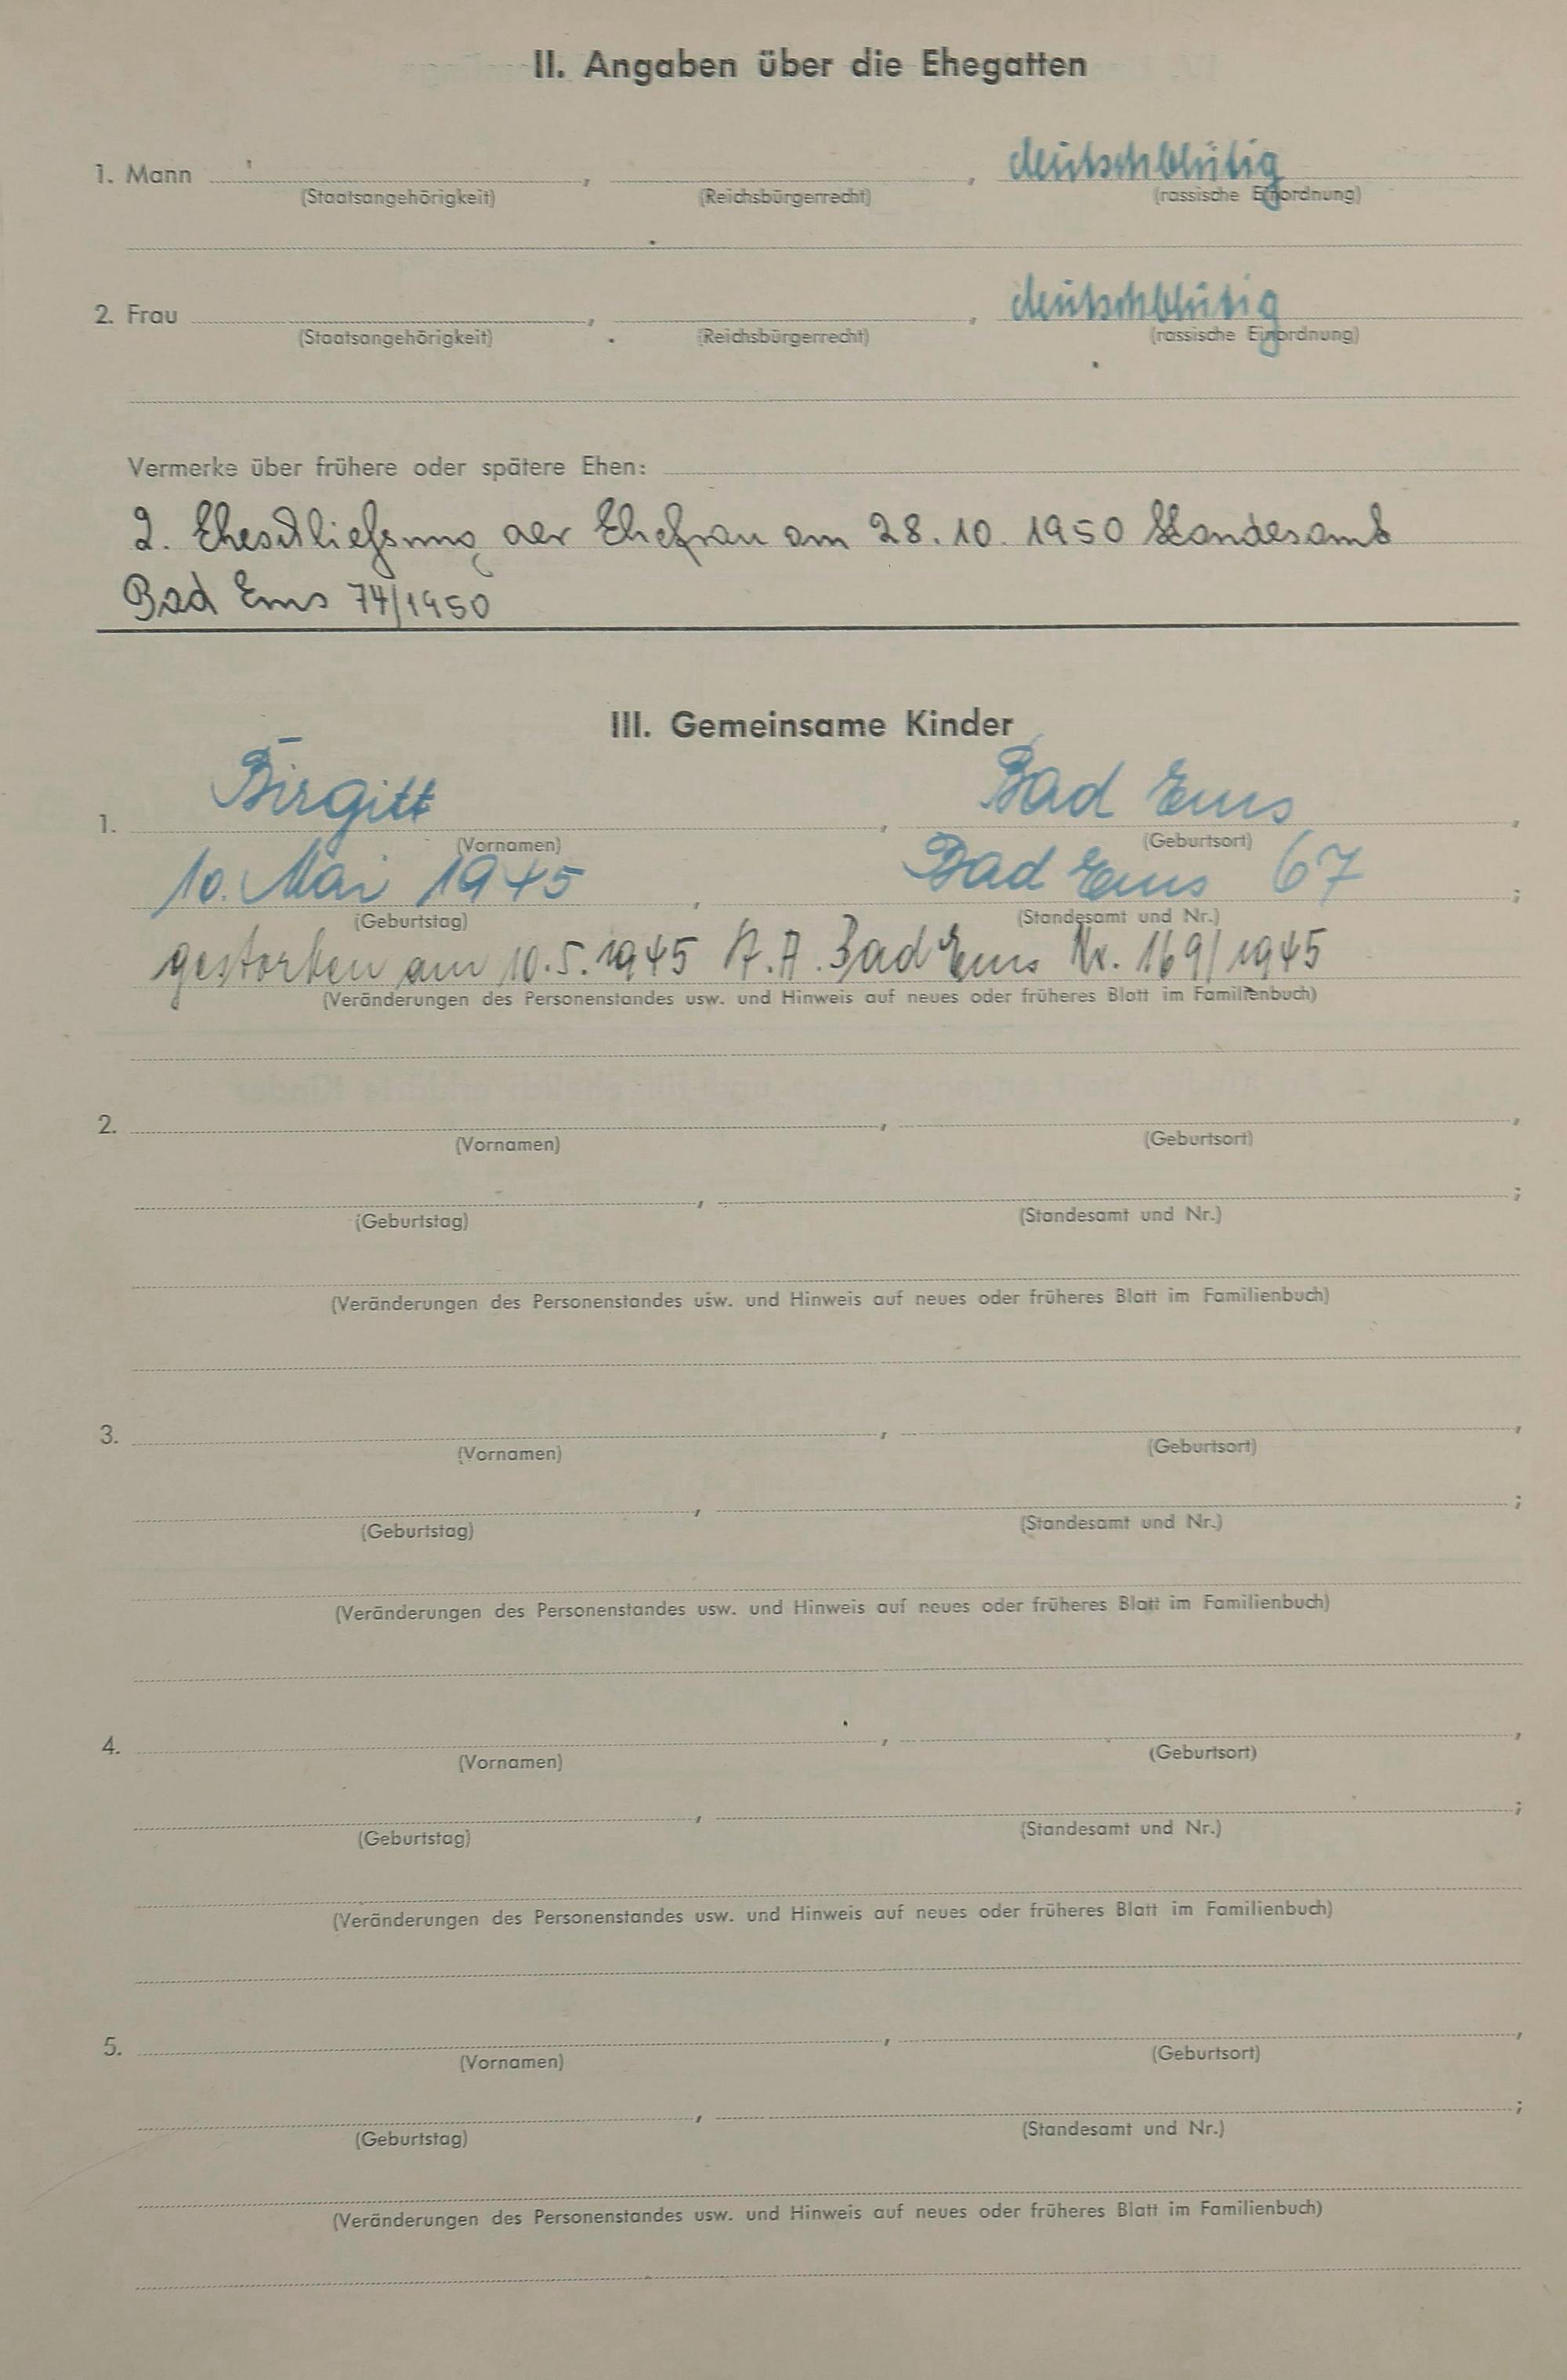 II. Angaben über die Ehegatten
1. Mann , , deutschblütig
(Staatsangehörigkeit) (Reichsbürgerrecht) (rassische Einordnung)
2. Frau , , deutschblütig
(Staatsangehörigkeit) (Reichsbürgerrecht) (rassische Einordnung)
Vermerke über frühere oder spätere Ehen:
2. Eheschließung der Ehefrau am 28.10.1950 Standesamt
Bad Ems 74/1950
III. Gemeinsame Kinder
1. Birgitt , Bad Ems ,
(Vornamen) (Geburtsort)
10. Mai 1945 , Bad Ems 67 ;
(Geburtstag) (Standesamt und Nr.)
gestorben am 10.5.1945 St.A. Bad Ems Nr. 169/1945
(Veränderungen des Personenstandes usw. und Hinweis auf neues oder früheres Blatt im Familienbuch)
2. , ,
(Vornamen) (Geburtsort)
, ;
(Geburtstag) (Standesamt und Nr.)
(Veränderungen des Personenstandes usw. und Hinweis auf neues oder früheres Blatt im Familienbuch)
3. , ,
(Vornamen) (Geburtsort)
, ;
(Geburtstag) (Standesamt und Nr.)
(Veränderungen des Personenstandes usw. und Hinweis auf neues oder früheres Blatt im Familienbuch)
4. , ,
(Vornamen) (Geburtsort)
, ;
(Geburtstag) (Standesamt und Nr.)
(Veränderungen des Personenstandes usw. und Hinweis auf neues oder früheres Blatt im Familienbuch)
5. , ,
(Vornamen) (Geburtsort)
, ;
(Geburtstag) (Standesamt und Nr.)
(Veränderungen des Personenstandes usw. und Hinweis auf neues oder früheres Blatt im Familienbuch)